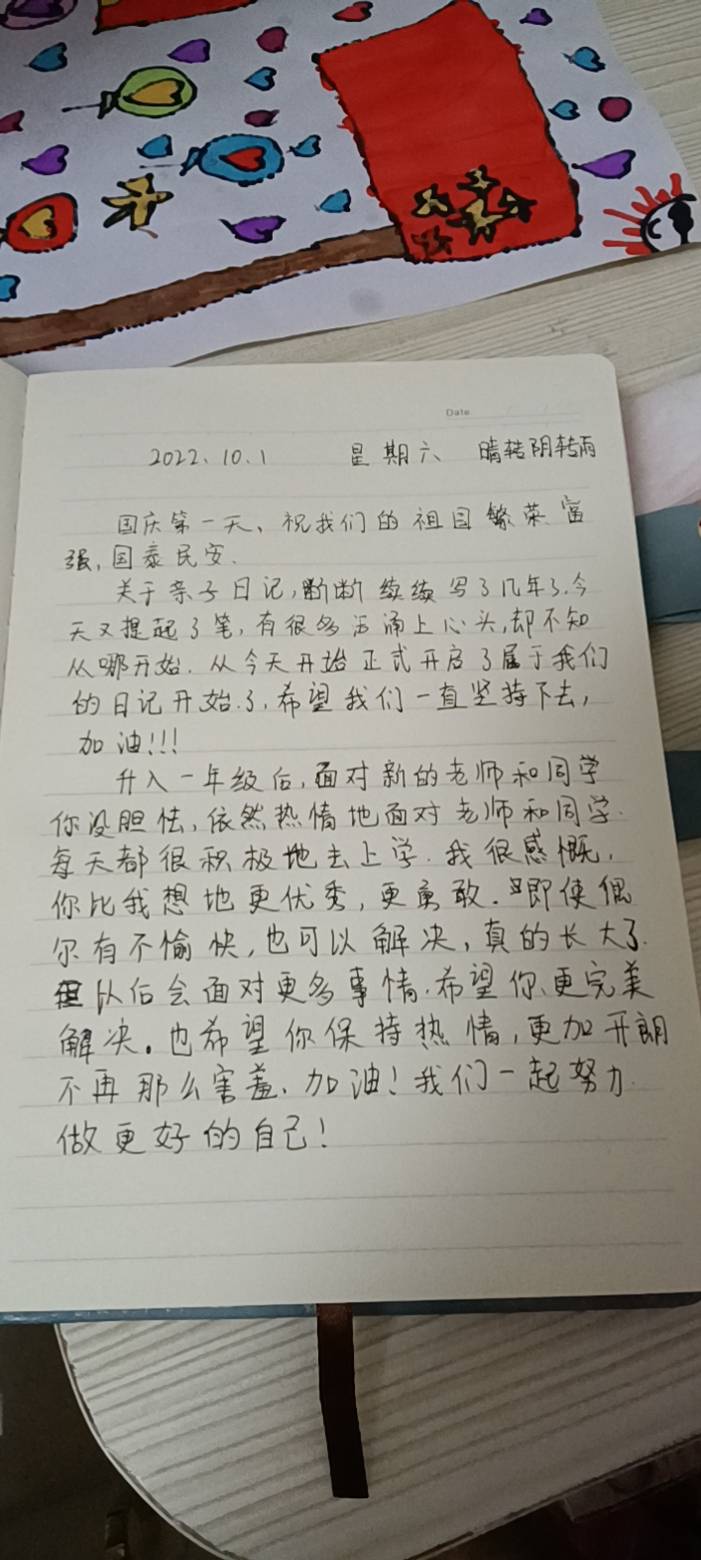 Date
2022.10.1 星期六 晴转阴转雨
国庆第一天、祝我们的祖国繁荣富
强,国泰民安.
关于亲子日记,断断续续写了几年了.今
天又提起了笔,有很多话涌上心头,却不知
从哪开始.从今天开始正式开启了属于我们
的日记开始了,希望我们一直坚持下去,
加油!!!
升入一年级后,面对新的老师和同学
你没胆怯,依然热情地面对老师和同学.
每天都很积极地去上学.我很感慨,
你比我想地更优秀,更勇敢.即使偶
尔有不愉快,也可以解决,真的长大了.
以后会面对更多事情.希望你、更完美
解决。也希望你保持热情,更加开朗
不再那么害羞.加油!我们一起努力
做更好的自己!